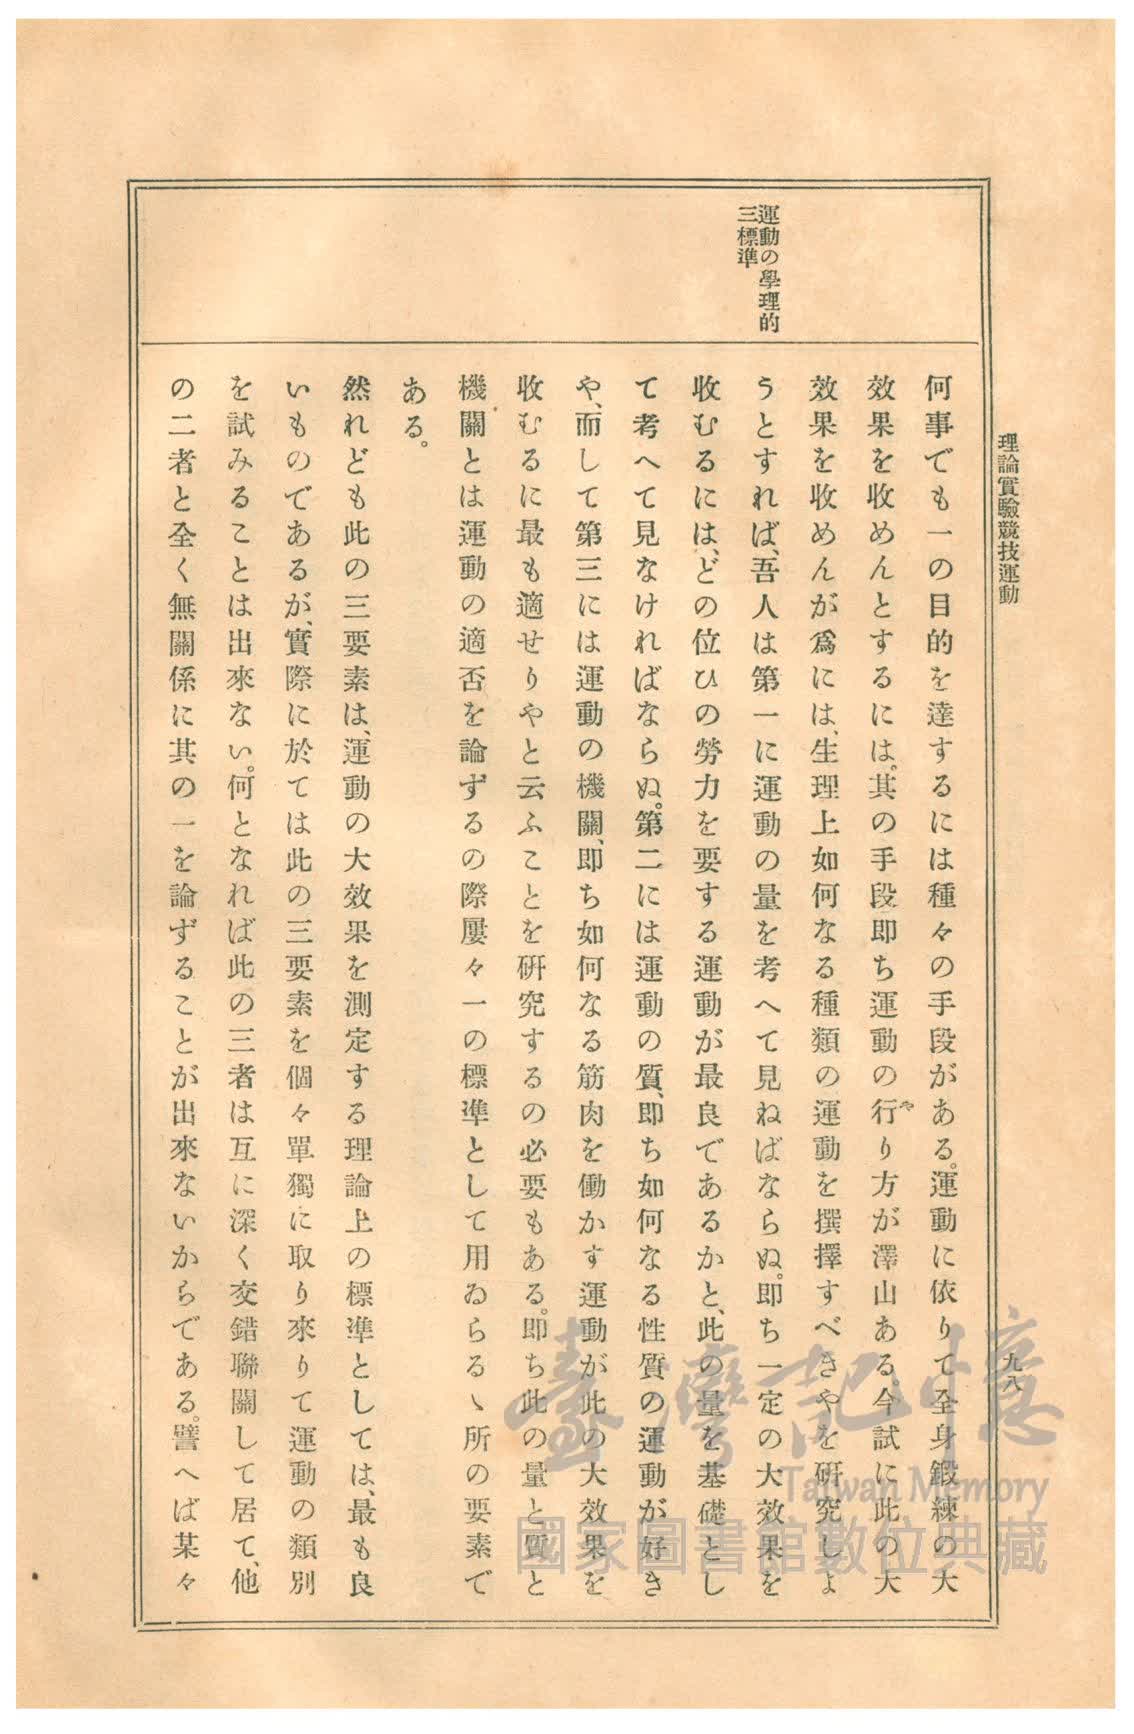 理論實驗競技運動
九八
運動の學理的
三標準
何事でも一の目的を達するには種々の手段がある。運動に依りて全身鍛練の大
效果を收めんとするには。其の手段即ち運動の行り方が澤山ある。今試に此の大
や
效果を收めんが爲には、生理上如何なる種類の運動を撰擇すべきやを硏究しよ
うとすれば、吾人は第一に運動の量を考へて見ねばならぬ。即ち一定の大效果を
收むるには、どの位ひの勞力を要する運動が最良であるかと、此の量を基礎とし
て考へて見なければならぬ。第二には運動の質、即ち如何なる性質の運動が好き
や、而して第三には運動の機關、即ち如何なる筋肉を働かす運動が此の大效果を
收むるに最も適せりやと云ふことを硏究するの必要もある。即ち此の量と質と
機關とは運動の適否を論ずるの際屢々一の標準として用ゐらるゝ所の要素で
ある。
然れども此の三要素は、運動の大效果を測定する理論上の標準としては、最も良
いものであるが、實際に於ては此の三要素を個々單獨に取り來りて運動の類別
を試みることは出來ない。何となれば此の三者は互に深く交錯聯關して居て、他
の二者と全く無關係に其の一を論ずることが出來ないからである。譬へば某々
臺灣記憶
Taiwan Memory
國家圖書館數位典藏